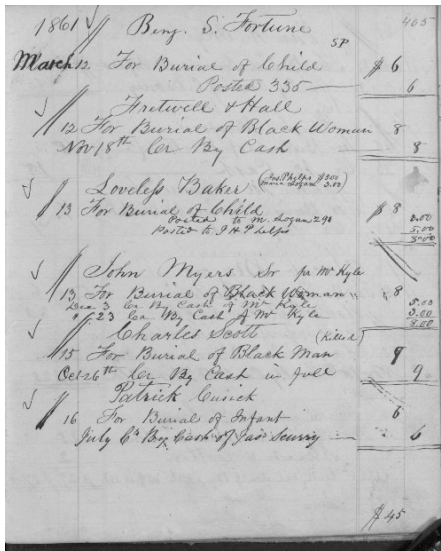 1861 // Benj. S. Fortune 465
SP
March 12 For Burial of Child $ 6
Posted 335 6
Fretwell & Hall
12 For Burial of Black Woman 8
Nov 18th Cr By Cash 8
Loveless Baker (Jas. Phelps $5.00
Logan 3.00)
13 For Burial of Child $ 8
Posted to M. Logan 290 3.00
Posted to J H Phelps 5.00
8.00
John Myers Sr pr Mr Kyle
13 For Burial of Black Woman " 8
Dec 3 Cr By Cash of Mr Kyle 5.00
" 23 Cr By Cash of Mr Kyle 3.00
8.00
Charles Scott (Killed)
15 For Burial of Black Man 9
Oct 26th Cr By Cash in full 9
Patrick Cusick
16 For Burial of Infant 6
July 6th By Cash of Jas Scurry 6
$ 45